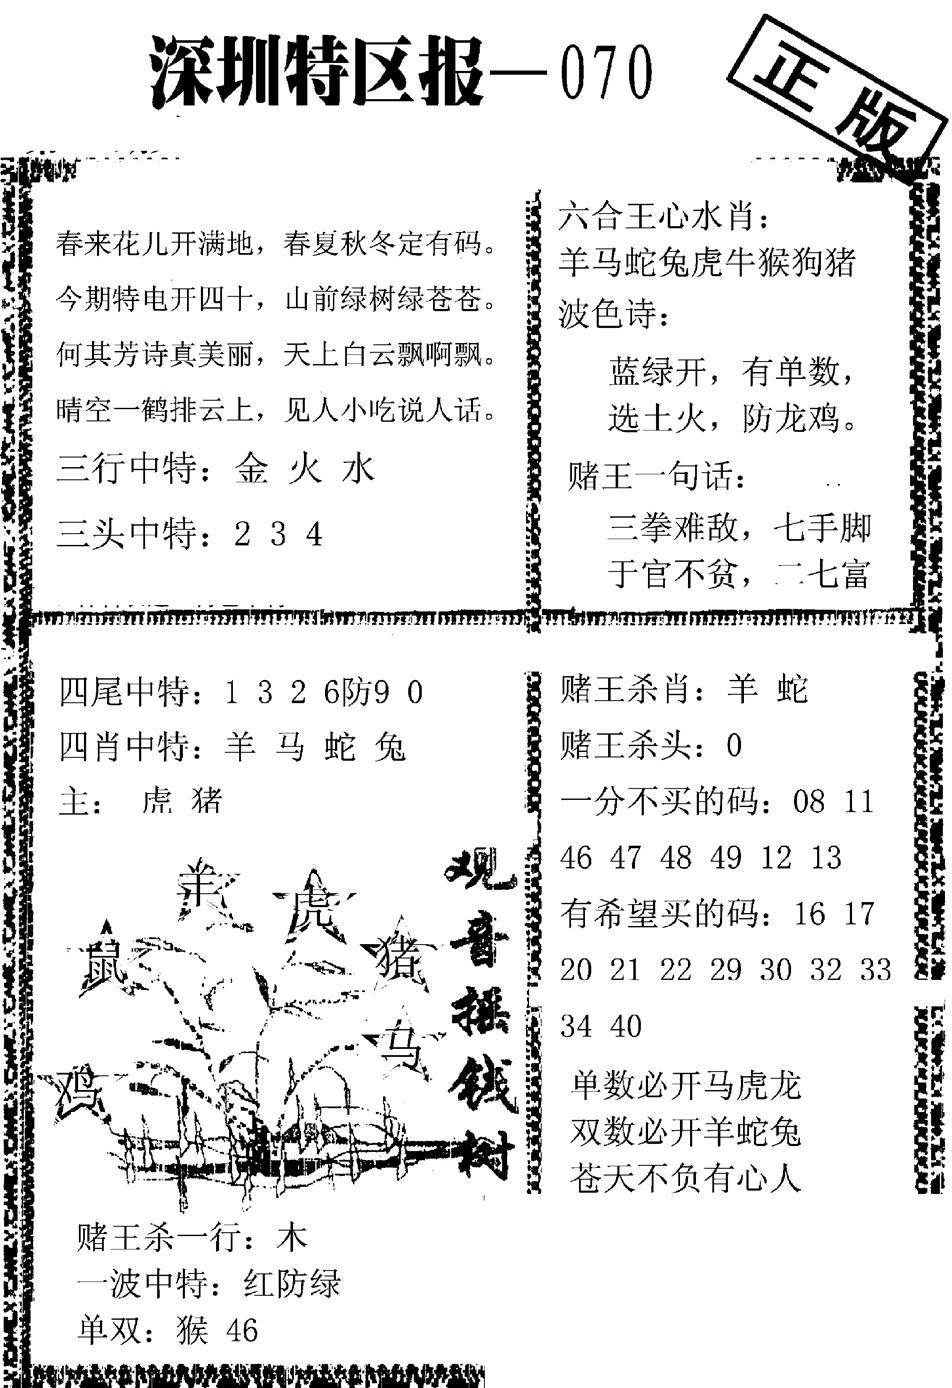 深圳特区报—070
正版
春来花儿开满地，春夏秋冬定有码。
今期特电开四十，山前绿树绿苍苍。
何其芳诗真美丽，天上白云飘啊飘。
晴空一鹤排云上，见人小吃说人话。
三行中特：金 火 水
三头中特：2 3 4
六合王心水肖：
羊马蛇兔虎牛猴狗猪
波色诗：
蓝绿开，有单数，
选土火，防龙鸡。
赌王一句话：
三拳难敌，七手脚
于官不贫，二七富
四尾中特：1 3 2 6防9 0
四肖中特：羊 马 蛇 兔
主： 虎 猪
羊
虎
鼠
猪
马
鸡
观音摇钱树
赌王杀一行：木
一波中特：红防绿
单双：猴 46
赌王杀肖：羊 蛇
赌王杀头：0
一分不买的码：08 11
46 47 48 49 12 13
有希望买的码：16 17
20 21 22 29 30 32 33
34 40
单数必开马虎龙
双数必开羊蛇兔
苍天不负有心人